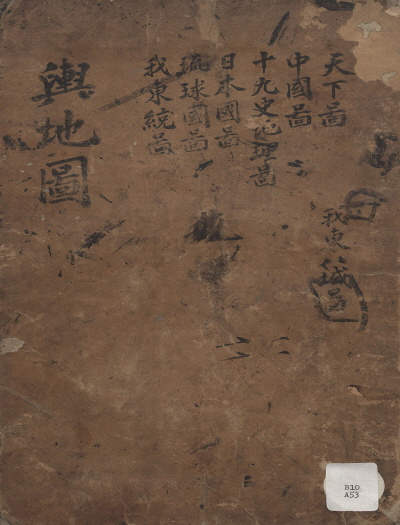 天下圖
中國圖
十九史地理圖
日本國圖
琉球國圖
我東統圖
輿地圖
我東
B10
A53